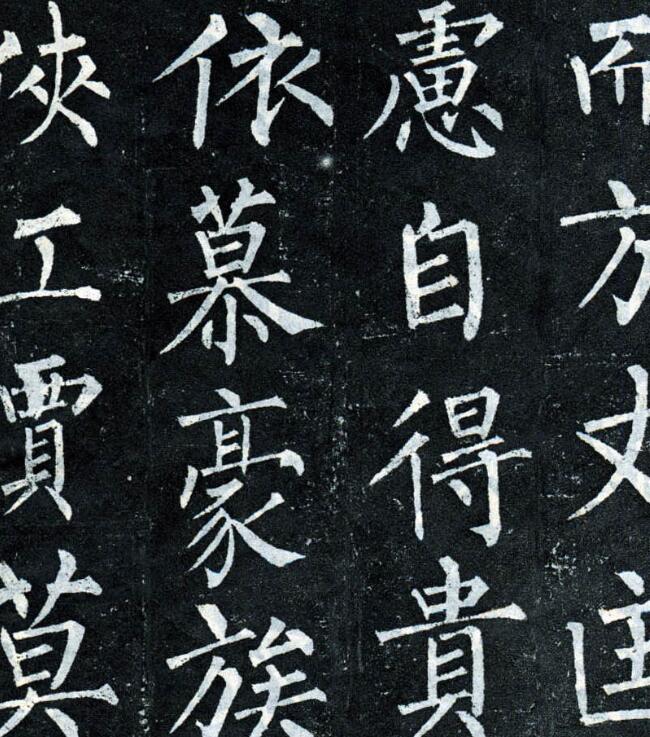 而方丈匡
慮自得貴
依慕豪族
俠工賈莫